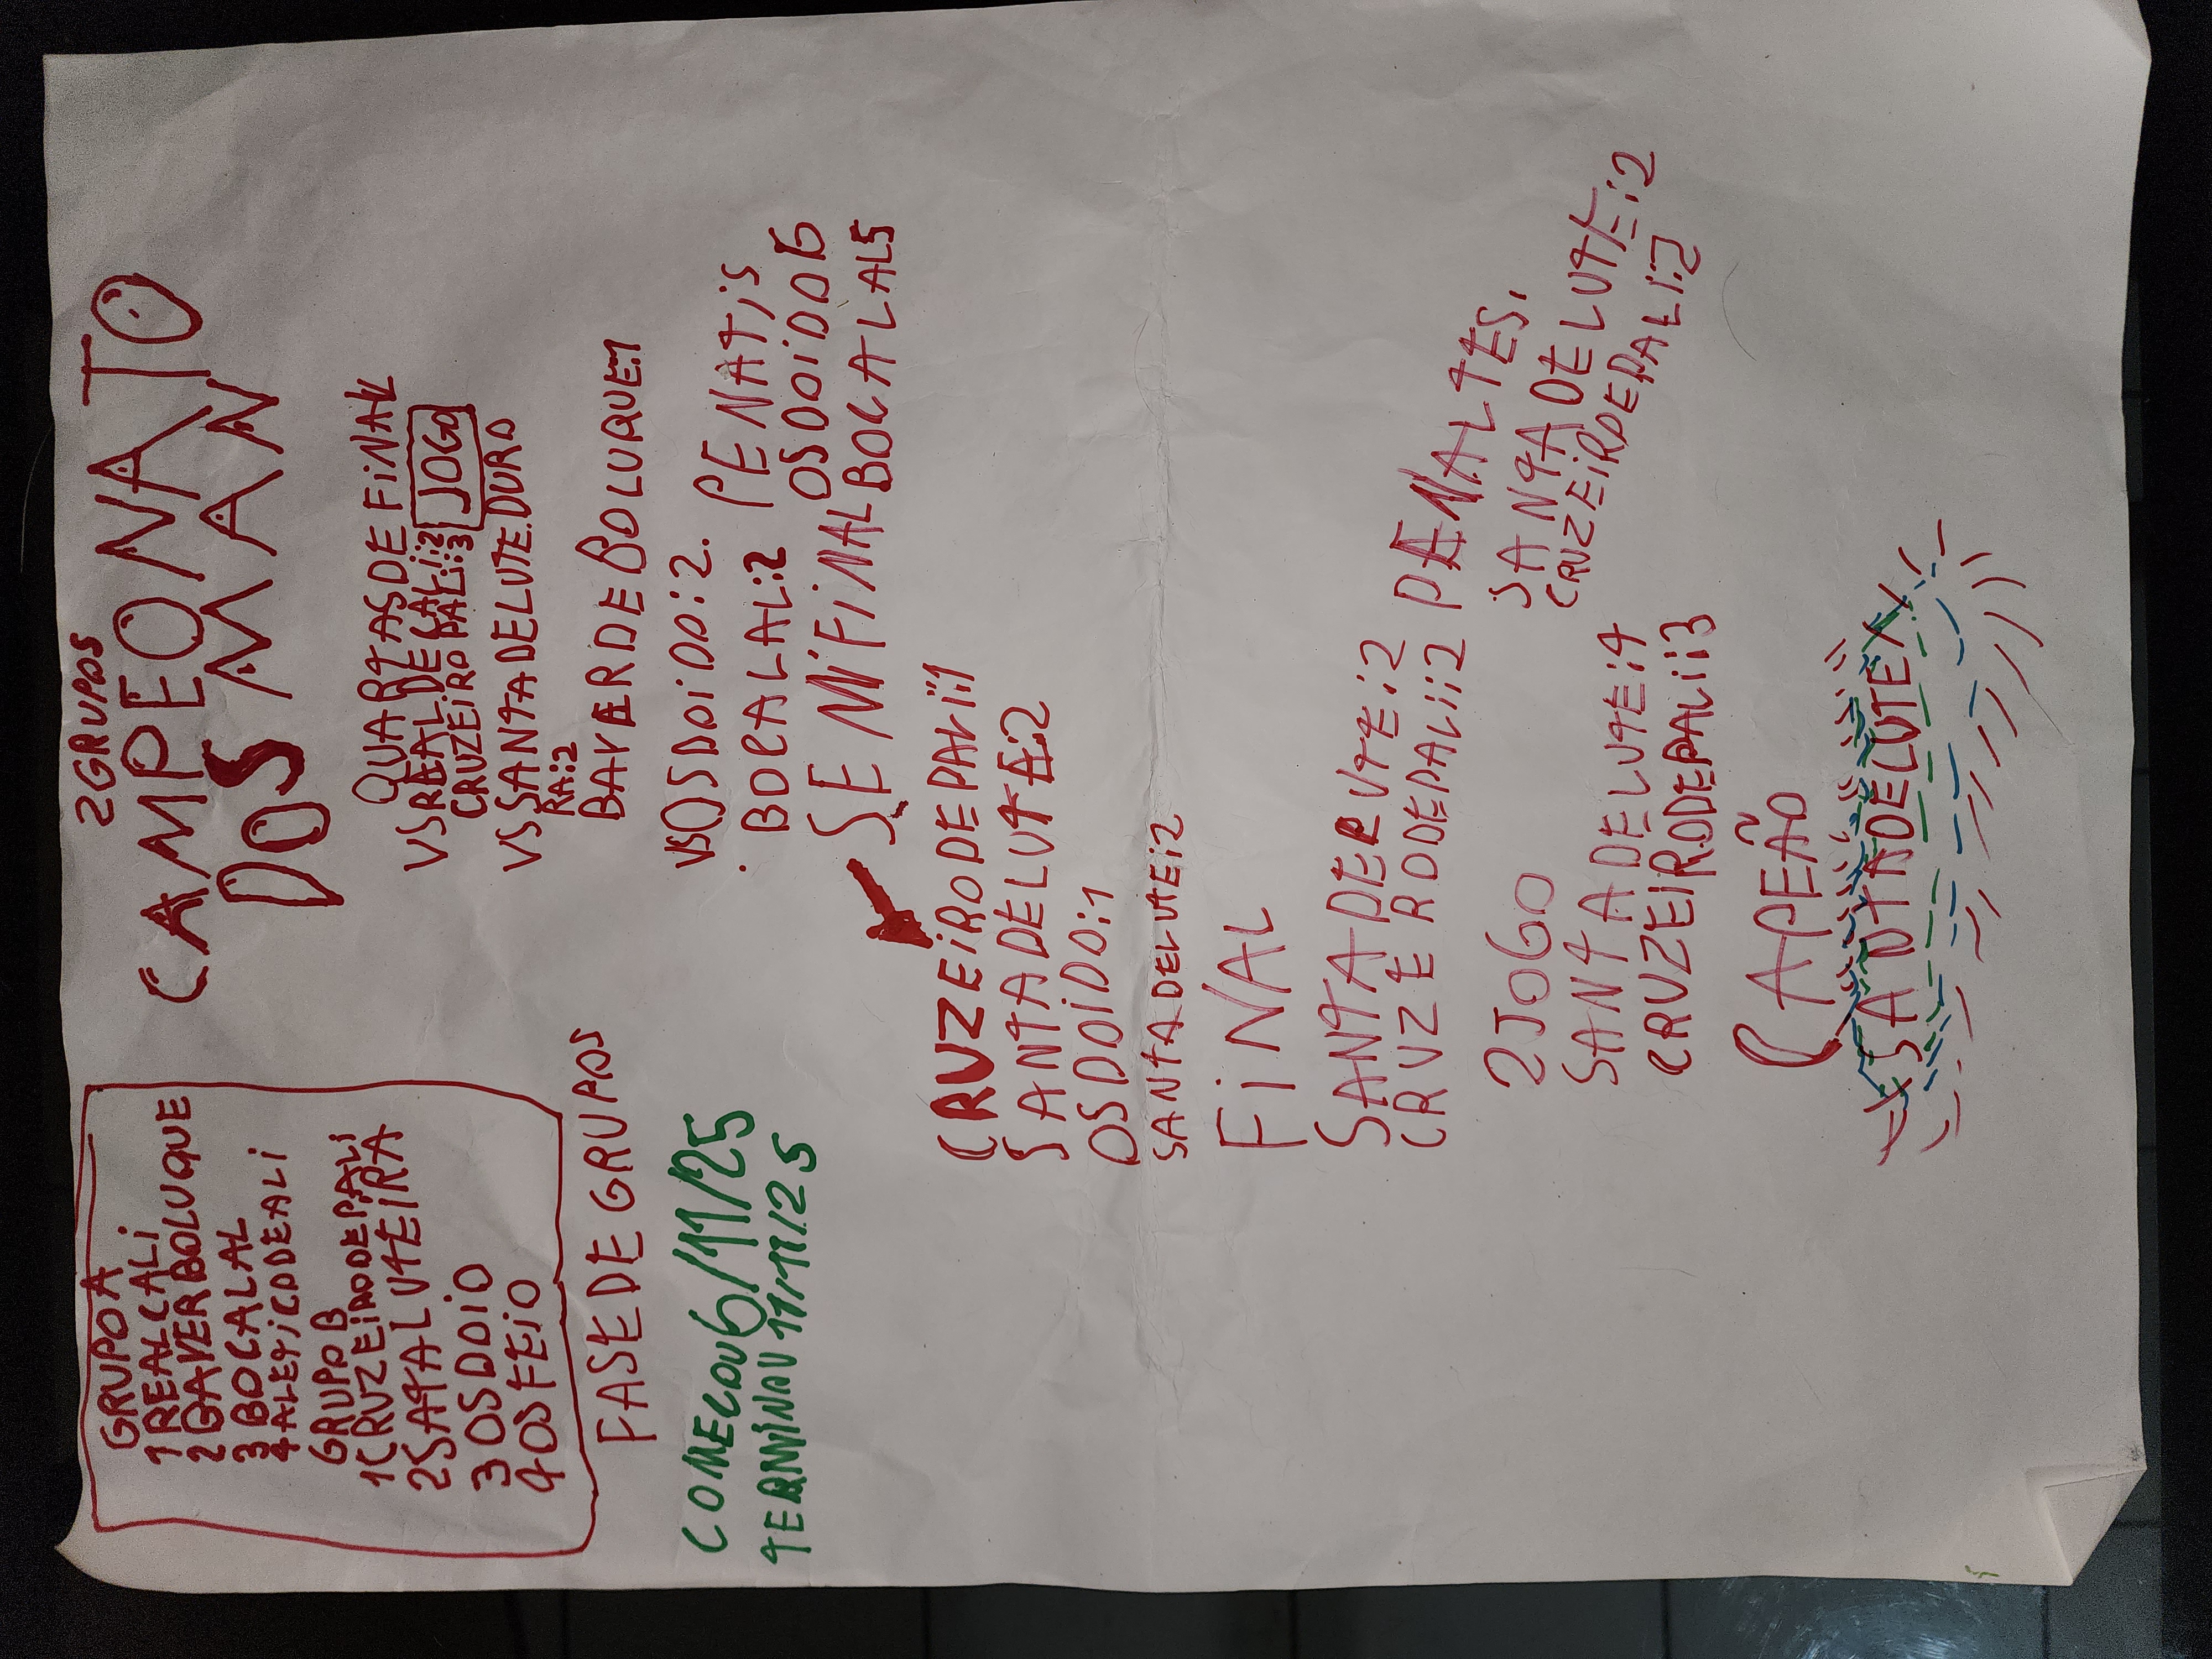 2 GRUPOS
CAMPEONATO
DOS MAN
GRUPO A
1 REALCALI
2 GAVERBOLUQUE
3 BOCALAL
4 ALETICODEALI
GRUPO B
1CRUZEIRODEPALI
2SATALUTEIRA
3 OSDDIO
4 OSFEIO
FASE DE GRUPOS
COMECOU 6/11/25
TERMINOU 11/11/25
QUARTAS DE FINAL
VS REAL DE CALI:2
CRUZEIRO PALI:3 JOGO
VS SANTA DE LUTE.DURO
RA:2
BAVERDEBOLUQUE:1
VS OSDOIDO:2. PENATIS
. BOCALAL:2 OSDOIDO6
BOCALAL5
SEMIFINAL
CRUZEIRODEPALI:1
SANTADELUTE:2
OSDOIDO:1
SANTADELUTE:2
FINAL
SANTADELUTE:2
CRUZERODEPALI:2 PENALTES.
SANTA DE LUTE:2
CRUZEIRDEPALI:2
2JOGO
SANTADELUTE:4
CRUZEIRODEPALI:3
CAPEÃO
SANTADELUTE